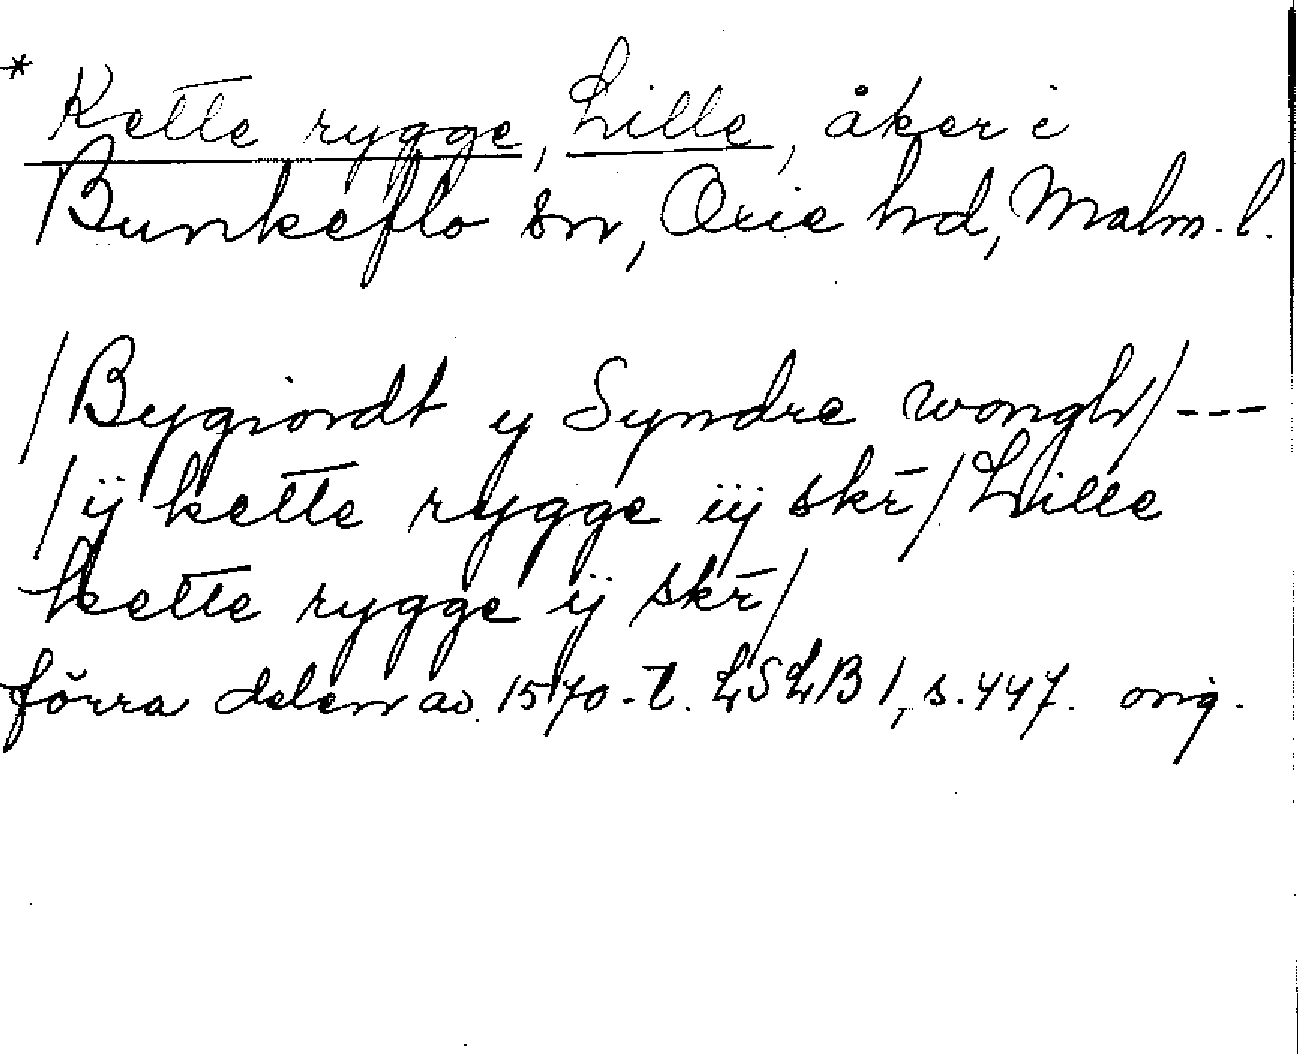 * Kette rygge, Lille, åker i
Bunkeflo sn, Oxie hd, Malm. l.
/Bygiordt y Syndre wongh/---
/ÿ kette rygge iÿ skr̄/Lille
kette rygge ÿ skr̄/
förra delen av 1570-t. LSLB 1, s. 447. orig.